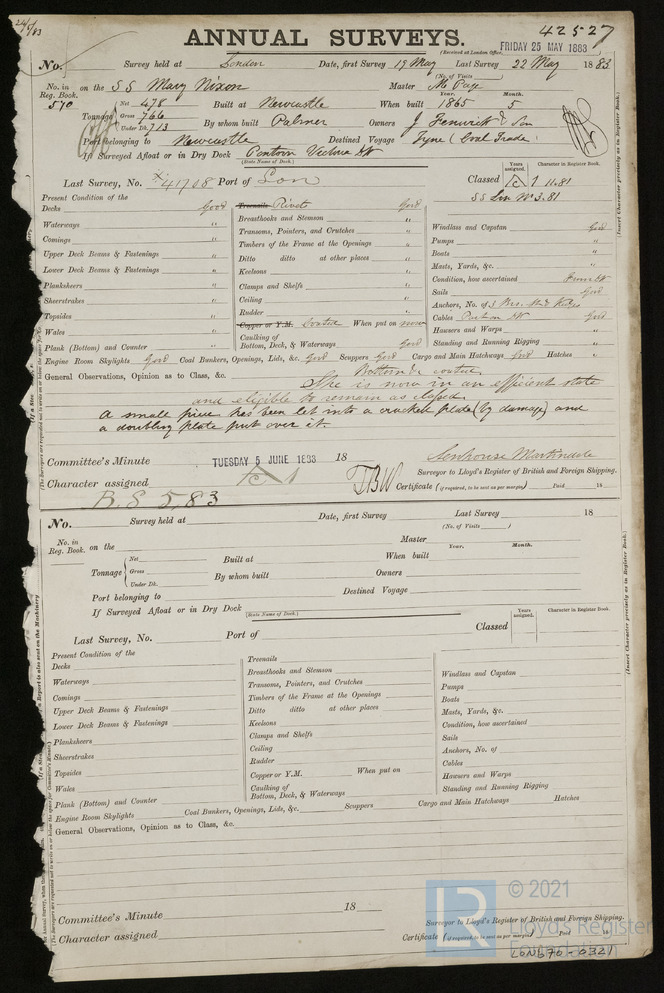 24/5/83
42527
ANNUAL SURVEYS.
(Received at London Office,
FRIDAY 25 MAY 1883
No. Survey held at London Date, first Survey 19 May Last Survey 22 May 1883
(No. of Visits )
No. in Reg. Book. on the SS Mary Nixon Master
570
Year. Month.
Tonnage Net 478 Built at Newcastle When built 1865 5
Gross 766
Under Dk. 713 By whom built Palmer Owners J Fenwick & Son
Port belonging to Newcastle Destined Voyage Tyne (Coal Trade)
If Surveyed Afloat or in Dry Dock Pontoon Victoria Dk
(State Name of Dock.)
Last Survey, No. 41708 Port of Lon Classed
Years assigned. Character in Register Book.
A 1 11.81
SS Lon No 3.81
(Insert Character precisely as in Register Book.)
Present Condition of the
Decks Good
Waterways "
Comings "
Upper Deck Beams & Fastenings "
Lower Deck Beams & Fastenings "
Planksheers "
Sheerstrakes "
Topsides "
Wales "
Plank (Bottom) and Counter "
Treenails Rivets Good
Breasthooks and Stemson "
Transoms, Pointers, and Crutches "
Timbers of the Frame at the Openings "
Ditto ditto at other places "
Keelsons "
Clamps and Shelfs "
Ceiling "
Rudder "
Copper or Y.M. Coated When put on now
Caulking of
Bottom, Deck, & Waterways Good
Windlass and Capstan Good
Pumps "
Boats "
Masts, Yards, &c. "
Condition, how ascertained
Sails Good
Anchors, No. of 3
Cables Good
Hawsers and Warps "
Standing and Running Rigging "
Engine Room Skylights Good Coal Bunkers, Openings, Lids, &c. Good Scuppers Good Cargo and Main Hatchways Good Hatches "
General Observations, Opinion as to Class, &c. Bottom & coated
She is now in an efficient state
and eligible to remain as classed.
A small piece has been let into a cracked plate (by damage) and
a doubling plate put over it.
Committee's Minute TUESDAY 5 JUNE 1883 18
Character assigned A 1
B.S 5 83
TBW
Senhouse Martindale
Surveyor to Lloyd's Register of British and Foreign Shipping.
Certificate (if required, to be sent as per margin) Paid 18
No. Survey held at Date, first Survey Last Survey 18
(No. of Visits )
No. in Reg. Book. on the Master
Year. Month.
Tonnage Net Built at When built
Gross
Under Dk. By whom built Owners
Port belonging to Destined Voyage
If Surveyed Afloat or in Dry Dock
(State Name of Dock.)
Last Survey, No. Port of Classed
Years assigned. Character in Register Book.
(Insert Character precisely as in Register Book.)
Present Condition of the
Decks
Waterways
Comings
Upper Deck Beams & Fastenings
Lower Deck Beams & Fastenings
Planksheers
Sheerstrakes
Topsides
Wales
Plank (Bottom) and Counter
Treenails
Breasthooks and Stemson
Transoms, Pointers, and Crutches
Timbers of the Frame at the Openings
Ditto ditto at other places
Keelsons
Clamps and Shelfs
Ceiling
Rudder
Copper or Y.M. When put on
Caulking of
Bottom, Deck, & Waterways
Windlass and Capstan
Pumps
Boats
Masts, Yards, &c.
Condition, how ascertained
Sails
Anchors, No. of
Cables
Hawsers and Warps
Standing and Running Rigging
Engine Room Skylights Coal Bunkers, Openings, Lids, &c. Scuppers Cargo and Main Hatchways Hatches
General Observations, Opinion as to Class, &c.
Committee's Minute 18
Character assigned
Surveyor to Lloyd's Register of British and Foreign Shipping.
Certificate (if required, to be sent as per margin) Paid 18
LR © 2021
Lloyd's Register
Foundation
LON670-0321